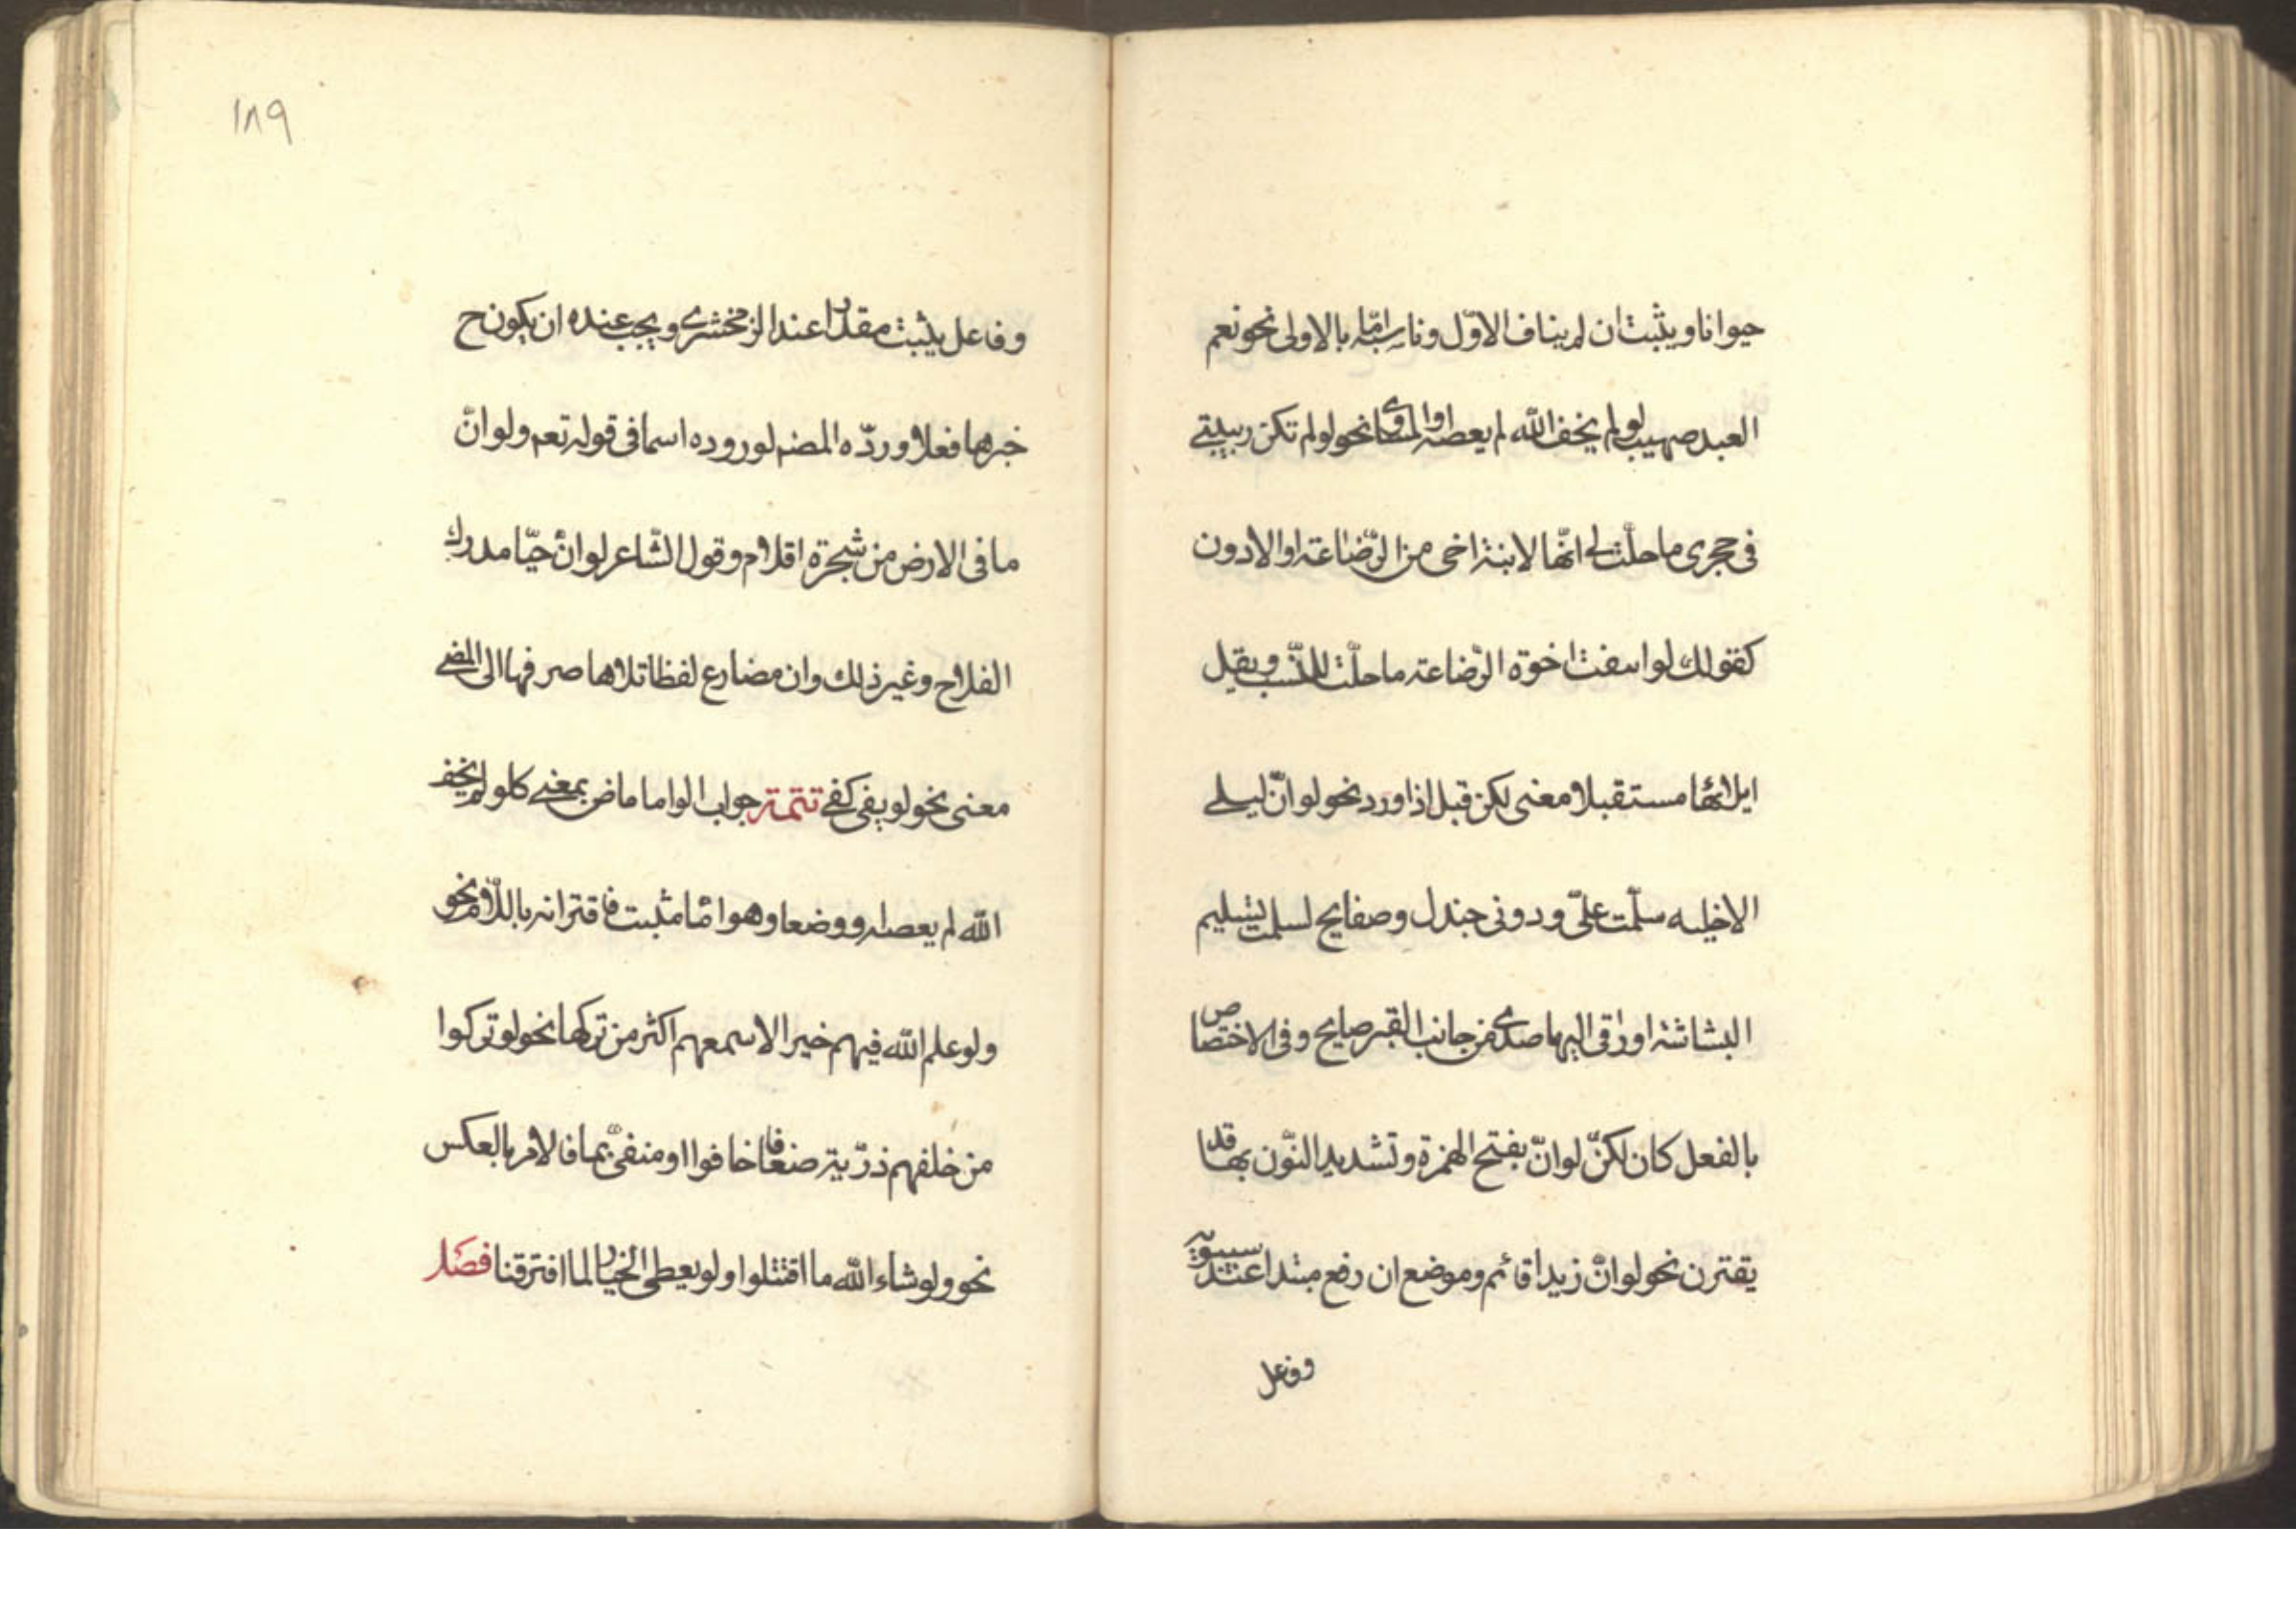 حيوانا ويثبت ان لم يناف الاوّل وناسبه امّا بالاولى نحو نعم
العبد صهيب لو لم يخف الله لم يعصه او المساوى نحو لو لم تكن ربيبتى
فى حجرى ما حلّت لى انّها لابنة اخى من الرّضاعة او الادون
كقولك لو انتفت اخوّة الرّضاعة ما حلّت للنّسب ويقل
ايلائها مستقبلا معنى لكن قبل اذا ورد نحو لو انّ ليلى
الاخيلية سلّمت علىّ ودونى جندل وصفايح لسلمت تسليم
البشاشة او زقى اليها صدى من جانب القبر صايح وفى الاختصاص
بالفعل كان لكنّ لو انّ بفتح الهمزة وتشديد النّون بها قد
يقترن نحو لو انّ زيدا قائم وموضع ان رفع مبتدا عند سيبويه
وفاعل
١٨٩
وفاعل يثبت مقدرا عند الزمخشرى ويجب عنده ان يكون ح
خبرها فعلا وردّه المضـ لوروده اسما فى قوله تعم ولو انّ
ما فى الارض من شجرة اقلام وقول الشّاعر لو انّ حيّا مدرك
الفلاح وغير ذلك وان مضارع لفظا تلاها صرفها الى المضى
معنى نحو لو يفى كفى تتمة جواب لو اما ماض بمعنى كلو لم يخف
الله لم يعصه ووضعا وهو امّا مثبت فاقترانه باللّام نحو
ولو علم الله فيهم خيرا لاسمعهم اكثر من تركها نحو لو تركوا
من خلفهم ذرّية ضعافا خافوا او منفىّ بما فالامر بالعكس
نحو ولو شاء الله ما اقتتلوا ولو يعطى الخيار لما افترقنا فصل